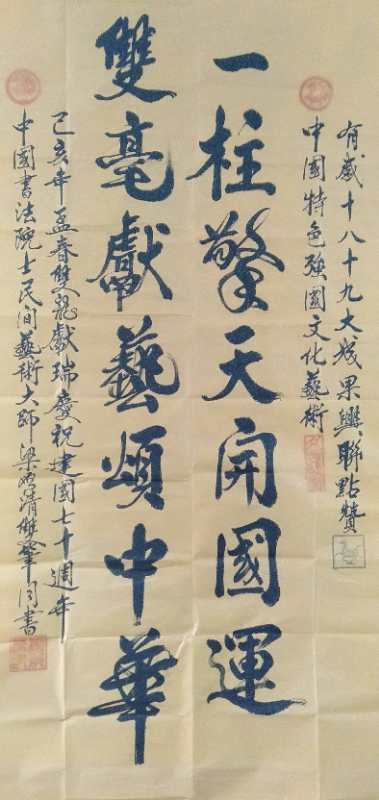 有感十八十九大成果興聯點贊
中國特色強國文化藝術
一柱擎天開國運
雙毫獻藝頌中華
己亥年孟春雙龍獻瑞慶祝建國七十週年
中國書法院士民间藝術大師梁 清雙筆同書